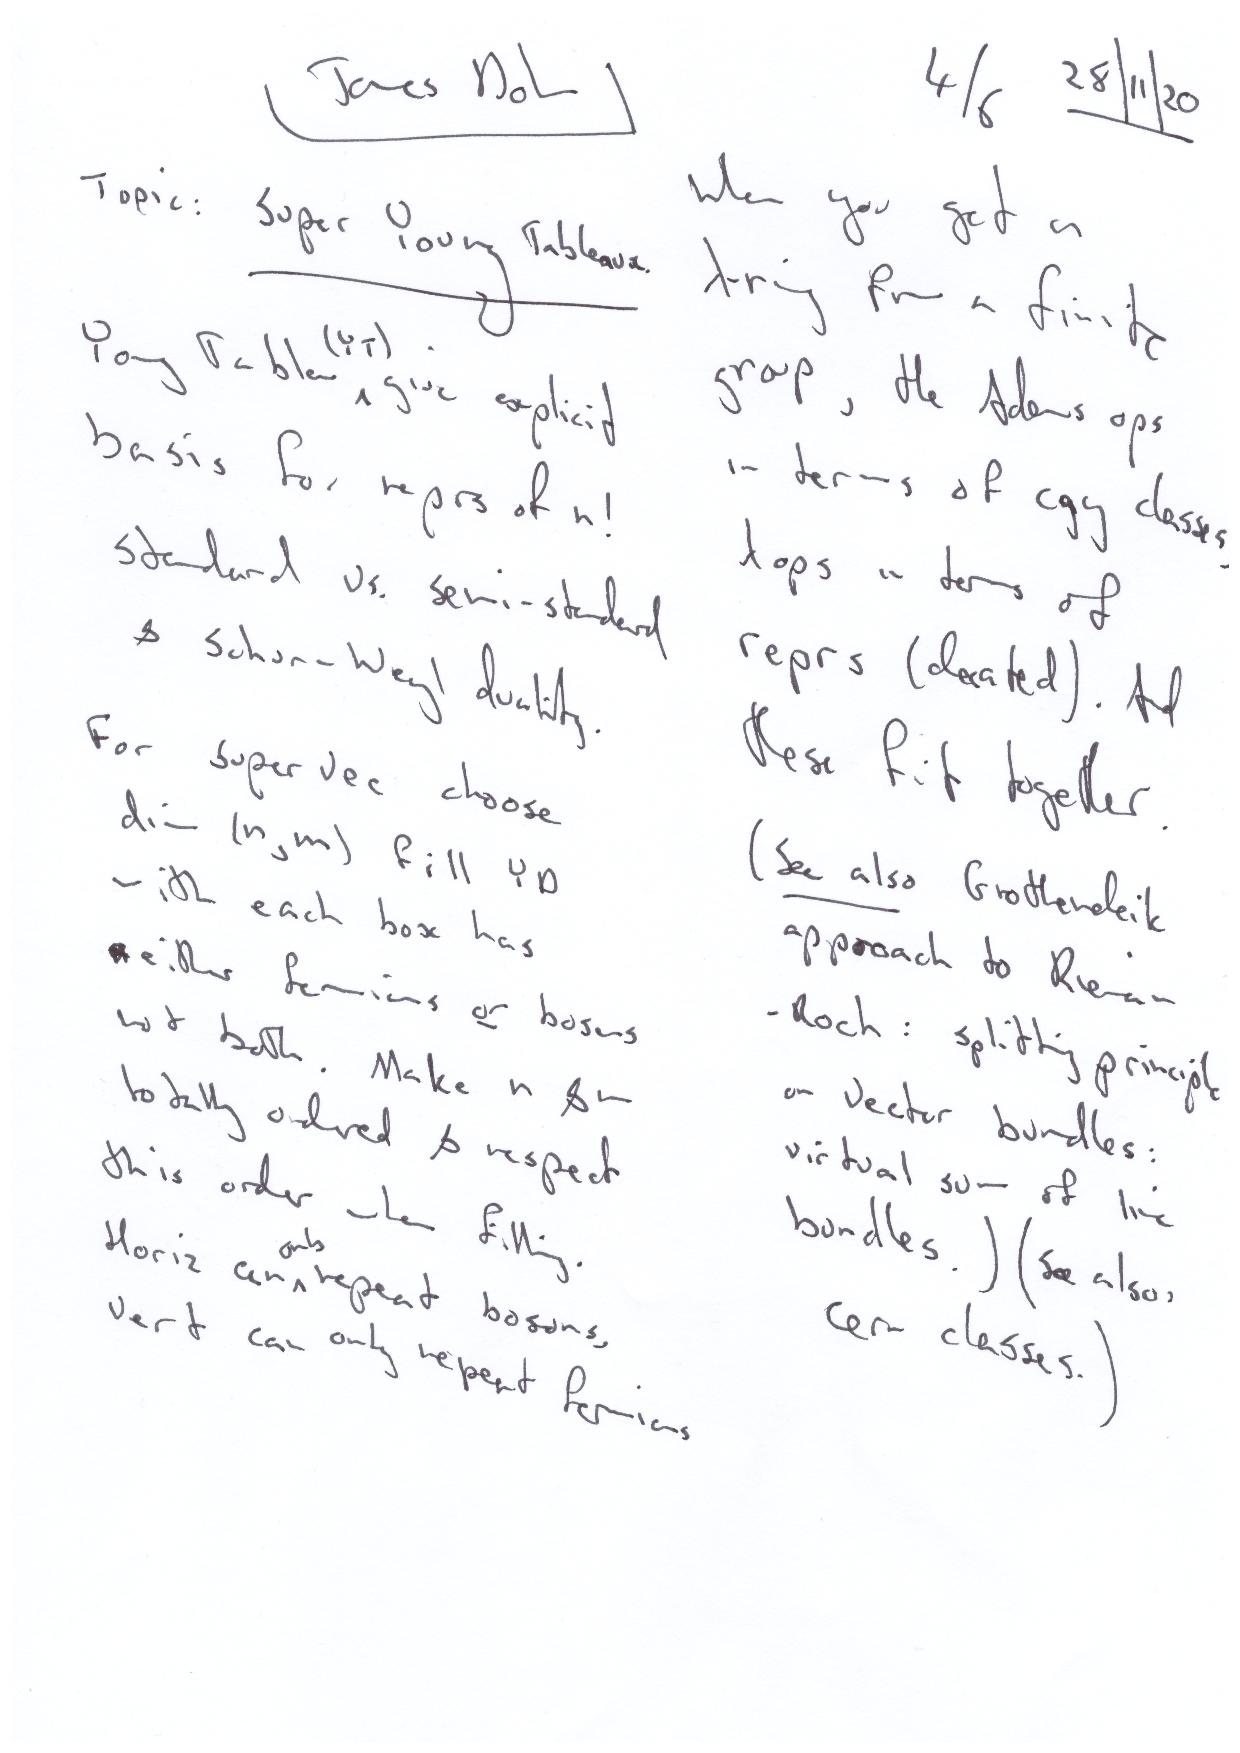 James Dol
4/6 28/11/20
Topic: Super Young Tableaux.
Young Tableau (YT) give explicit
basis for reprs of n!
Standard vs. semi-standard
& Schur-Weyl duality.
For super vec choose
dim (n,m) fill YD
with each box has
either fermions or bosons
not both. Make n & m
totally ordered & respect
this order when filling.
Horiz can only repeat bosons,
vert can only repeat fermions
When you get a
λ-ring from a finite
group, the Adams ops
in terms of cgy classes,
λ ops in terms of
reprs (decated). And
these fit together.
(See also Grothendeik
approach to Rieman
-Roch: splitting principle
on vector bundles:
virtual sum of line
bundles.) (See also,
Cern classes.)